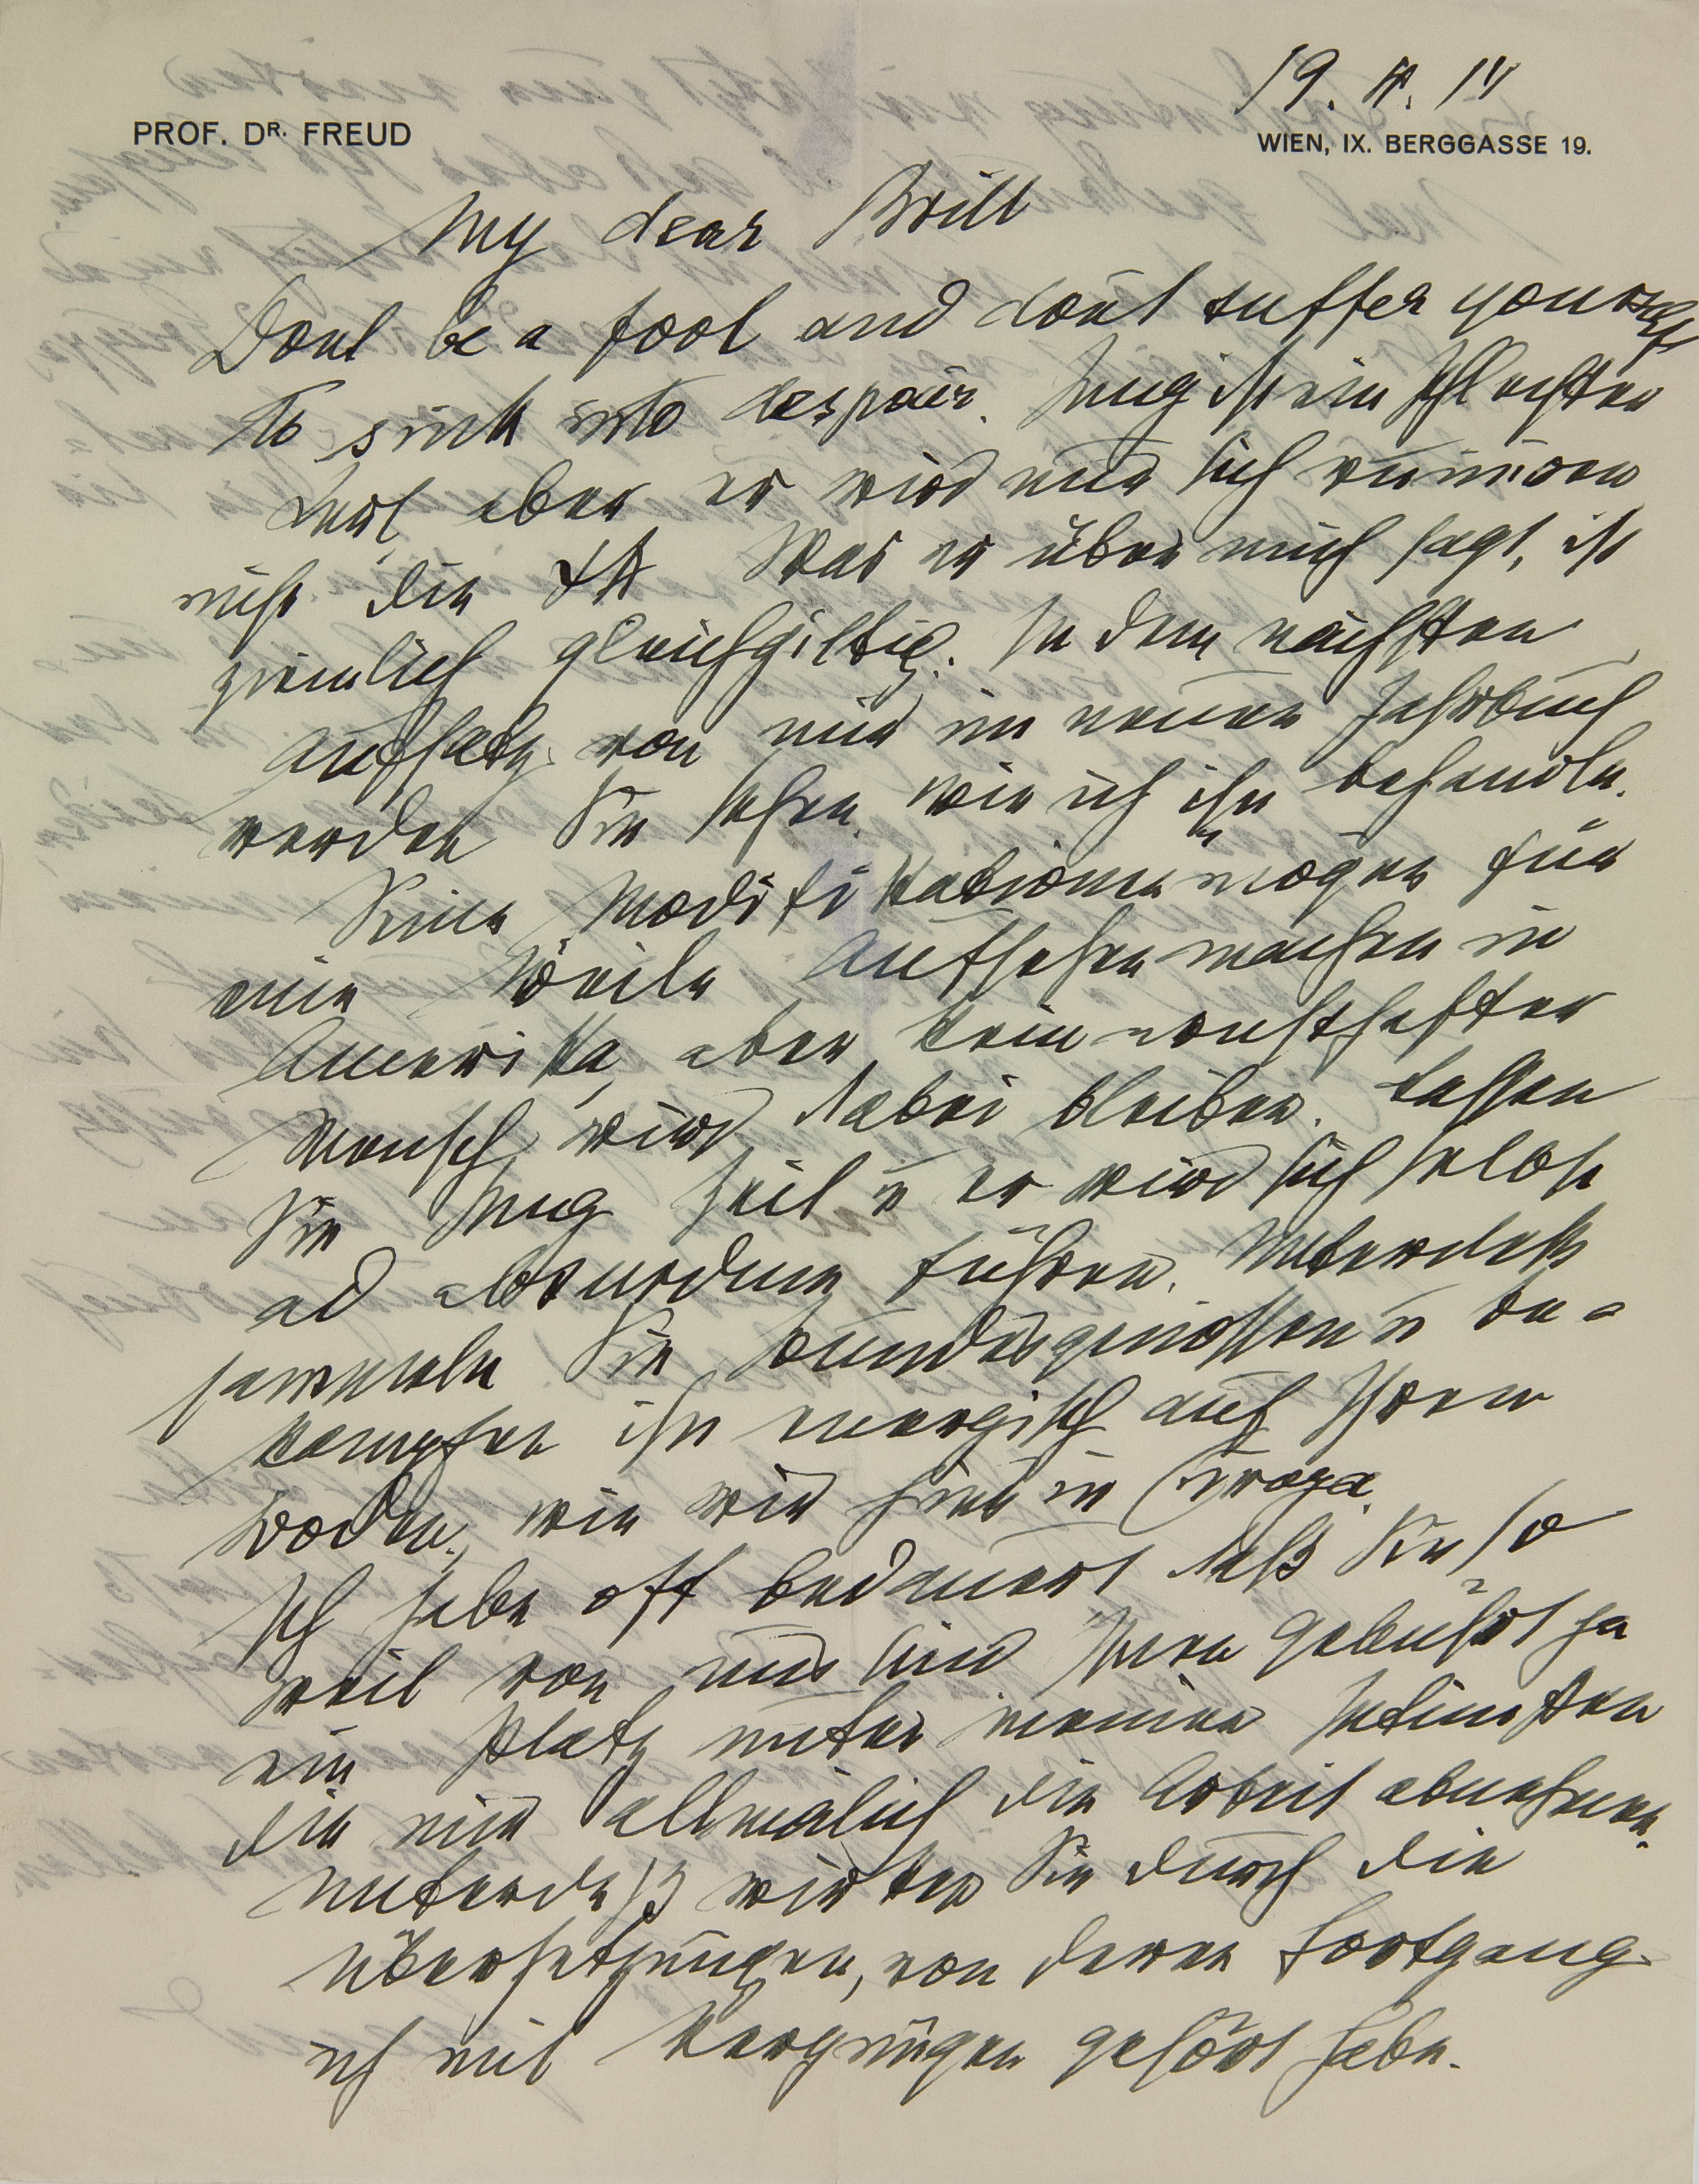 19. IV. 14
PROF. DR. FREUD
WIEN, IX. BERGGASSE 19.
My dear Brill
Dont be a fool and dont suffer yourself
to sink into despair. Jung ist ein schlechter
Kerl, aber er wird nur sich ruiniren
nicht die ΨA. Was er über mich sagt, ist
ziemlich gleichgiltig. In dem nächsten
Aufsatz von mir im neuen Jahrbuch
werden Sie sehen, wie ich ihn behandle.
Seine Modifikationen mögen für
eine Weile Aufsehen machen in
Amerika, aber kein ernsthafter
Mensch wird dabei bleiben. Lassen
Sie Jung Zeil u er wird sich selbst
ad absurdum führen. Unterdeß
sammeln Sie Bundesgenossen u be-
kämpfen ihn energisch auf Ihrem
Boden, wie wir hier in Europa.
Ich habe oft bedauert daß Sie so
weit von uns sind Ihnen gebührt ja
ein Platz unter meinen Intimsten
die mir allmälich die Arbeit abnehmen.
Unterdeß wirken Sie durch die
Übersetzungen, von deren Fortgang
ich mit Vergnügen gehört habe.